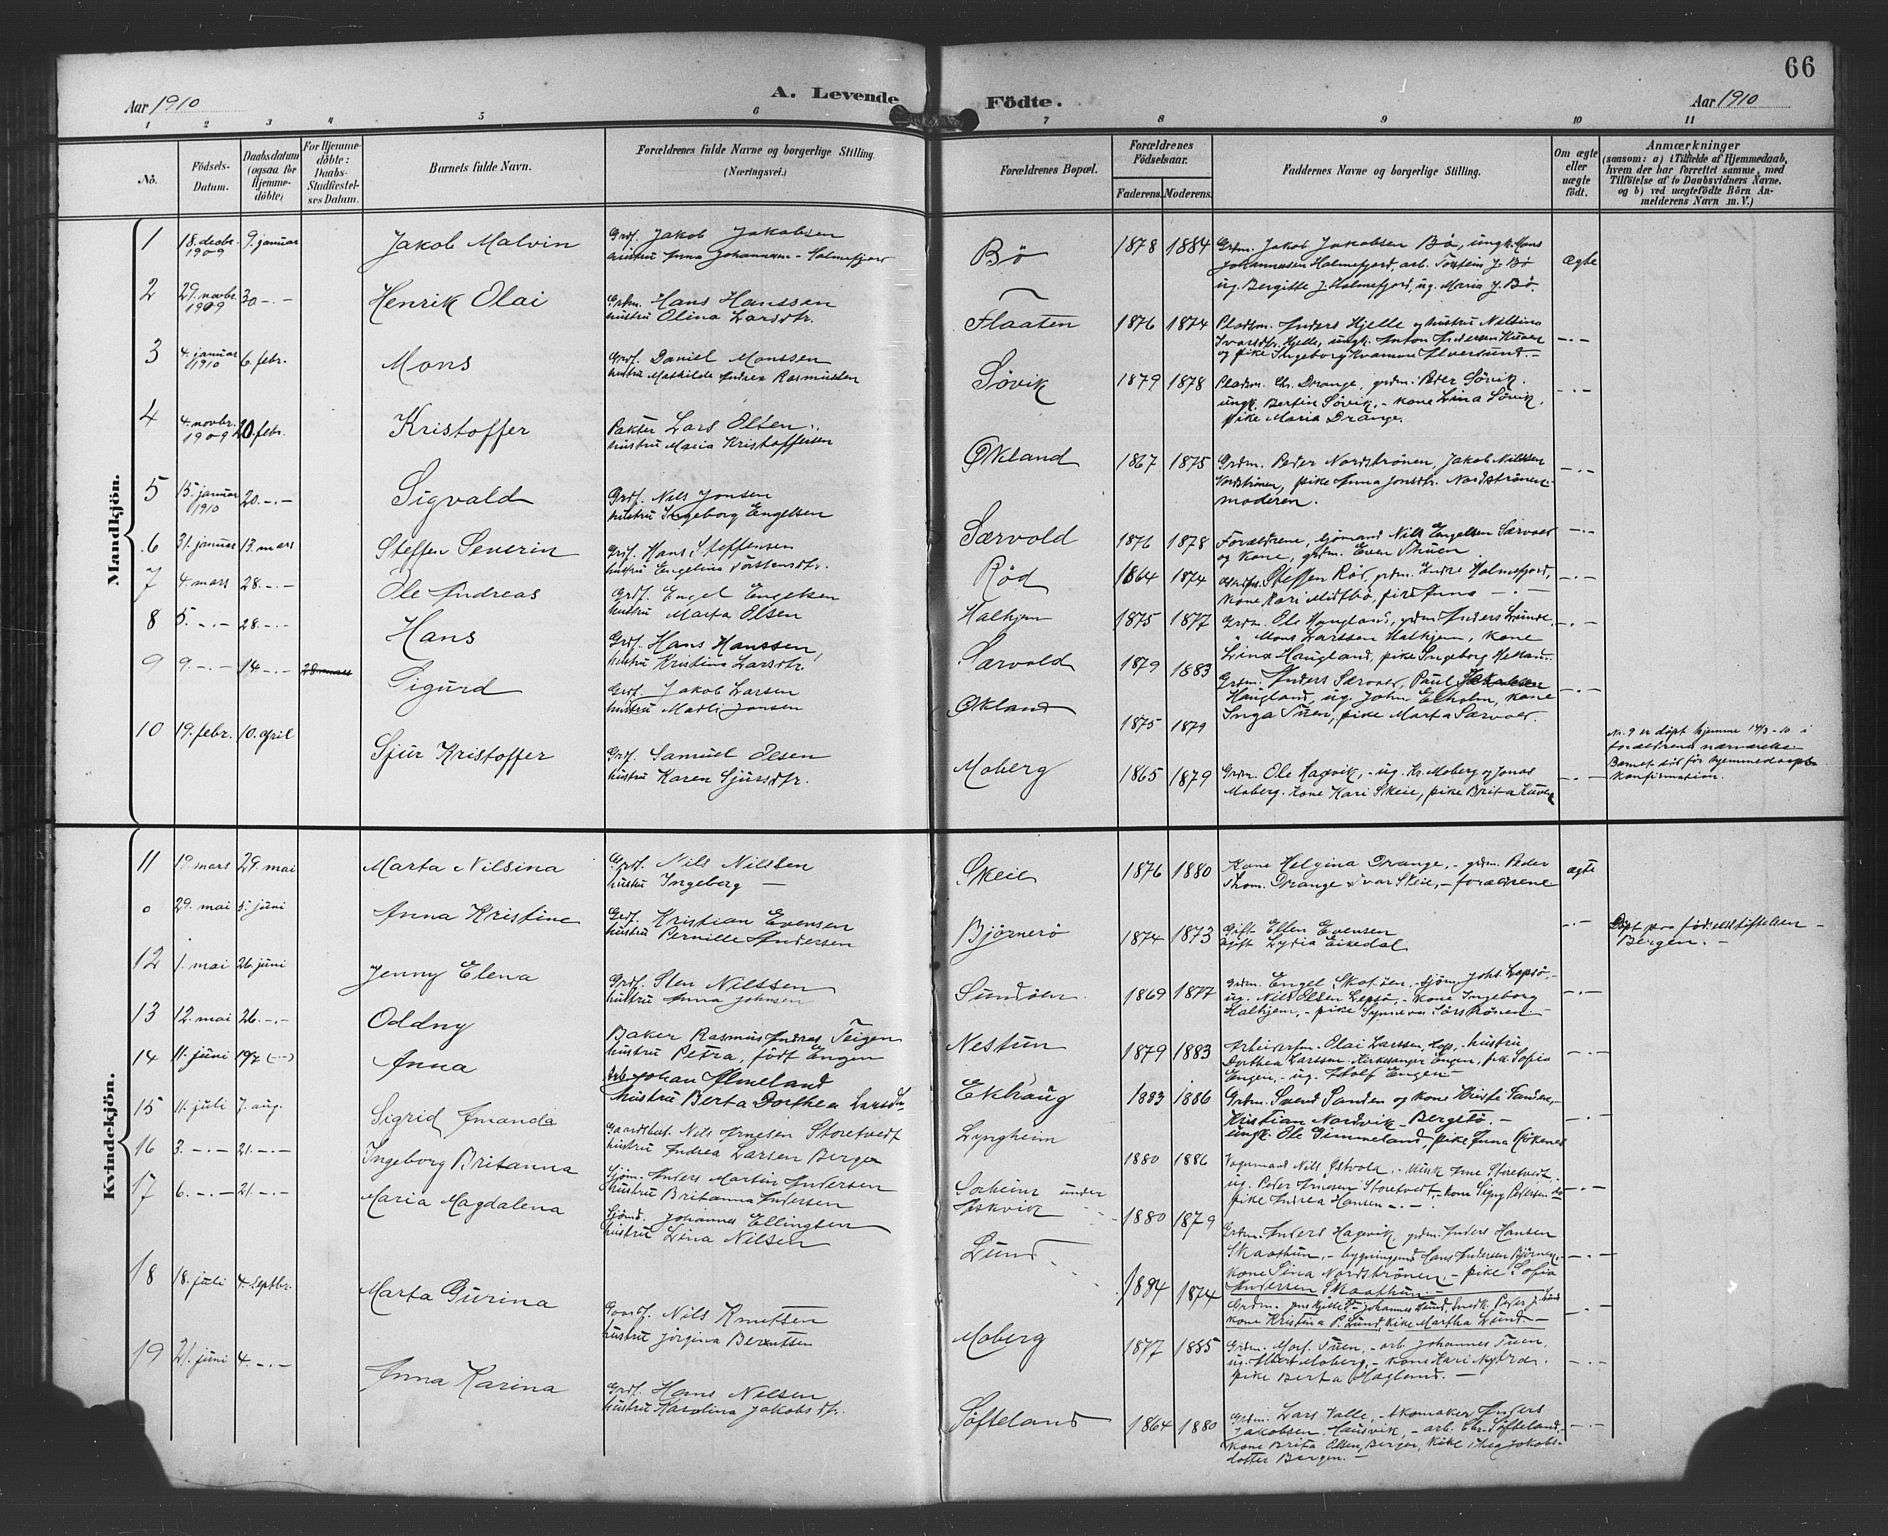 66
Aar 1910
A. Levende Födte.
Aar 1910
1 2 3 4 5 6 7 8 9 10 11
No.
Födsels-Datum.
Daabsdatum (ogsaa for Hjemme-döbte)
For Hjemme-döbte: Daabs-Stadfæstel-ses Datum.
Barnets fulde Navn.
Forældrenes fulde Navne og borgerlige Stilling (Næringsvei.)
Forældrenes Bopæl.
Forældrenes Födselsaar.
Faderens. Moderens.
Faddernes Navne og borgerlige Stilling.
Om ægte eller uægte födt.
Anmærkninger
(saasom: a) i Tilfælde af Hjemmedaab, hvem der har forrettet samme, med Tilföielse af to Daabsvidners Navne, og b) ved uægtefödte Börn An-melderens Navn m. V.)
Mandkjön.
1 18. decbr. 1909 9. januar Jakob Malvin
Grdf. Jakob Jakobsen
hustru Anna Johannesen - Holmefjord
Bö 1878 1884
Grdm. Jakob Jakobsen Bö, ungk. Hans
Johannesen Holmefjord, arb. Torstein J. Bö
ug. Bergitte J. Holmefjord, ug. Maria J. Bö.
ægte
2 29. novbr. 1909 30 - - Henrik Olai
Grdm. Hans Hanssen
hustru Olina Larsdtr.
Flaaten 1876 1874
Pladsm. Anders Hjelle og hustru Nilsina
Ivarsdtr. Hjelle, ungk. Anton Andersen
og pike Ingeborg Kvamme Alversund -
- . -
3 4. januar 1910 6 febr. Mons
Grdf. Daniel Monssen
hustru Mathilde Andrea Rasmussen
Sövik 1879 1878
Pladsm. Chr. Drange, grdm. Peder Sövik.
ungk. Bertin Sövik, - kone Lina Sövik,
pike Maria Drange.
- . -
4 4. novbr. 1909 20. febr. Kristoffer
Pakter Lars Olsen
hustru Maria Kristoffersen
Økland 1867 1875
Grdm. Peder Nordströnen, Jakob Nilssen
Nordströnen, pike Anna Jonsdtr. Nordströnen
moderen.
- . -
5 15. januar 1910 20. - . - Sigvald
Grdf. Nils Jonsen
hustru Ingeborg Engelsen
Særvold 1876 1878
Forældrene, sjömand Nils Engelsen Særvold
og kone, grdm. Even Thuen
- . -
6 31. januar 13. mars Steffen Severin
Grdf. Hans Steffensen
hustru Engelina Torstensdtr.
Röd 1864 1874
Steffen Röd, grdm. Endre Holmefjord,
kone Kari Midtbö, pike Anna - . -
- . -
7 4. mars 28. - . - Ole Andreas
Grdf. Engel Engelsen
hustru Marta Olsen
Halhjem 1875 1877
Grdm. Ole Haugland, grdm. Anders Lunde,
" Mons Larssen Halhjem, kone
Lina Haugland, pike Ingeborg
- . -
8 5. - . - 28. - . - Hans
Grdf. Hans Hanssen,
hustru Kristina Larsdtr.
Særvold 1879 1883
Grdm. Anders Særvold, Paul
Haugland, ug. John Ekholm, kone
Inga Tuen, pike Marta Særvold.
- . -
9 9. - . - 14 - . - 28. mars Sigurd
Grdf. Jakob Larsen
hustru Marli Jonsen
Økland 1875 1879
10 19. febr. 10. april Sjur Kristoffer
Grdf. Samuel Olsen
hustru Karen Sjursdtr.
Moberg 1865 1879
Grdm. Ole Hagvik, - ug. Kr. Moberg og Jonas
Moberg. Kone Kari Skeie, pike Brita
- . -
Nr. 9 er döpt hjemme 14/3 - 10 i
forældrenes nærværelse
Barnet död för hjemmedaaps
konfirmation.
Kvindekjön.
11 19 mars 29. mai Marta Nilsina
Grdf. Nils Nilsen
hustru Ingeborg -
Skeie 1876 1880
Kone Helgina Drange, - grdm. Peder
Thom. Drange Ivar Skeie, - forældrene
ægte
0 29. mai 5. juni Anna Kristine
Grdf. Kristian Evensen
hustru Pernille Andersen
Björnerö 1874 1873
Gift Elten Evensen
Gift Lydia Eikedal
- . -
Döpt paa födselsstiftelsen
Bergen. -
12 1. mai 26. juni Jenny Elena
Grdf. Sten Nilssen
hustru Anna Johnsen
Sundöen 1869 1877
Grdm. Engel Skotöen, - sjöm. Johs. Lepsö,
ug. Nils Olsen Lepsö, - kone Ingeborg
Halhjem, - pike Synneva Sörströnen -
- . -
13 12. mai 26. - . - Oddny
Baker Rasmus Andreas Teigen
hustru Petra, född Engen
Nestun 1879 1883
Arbeiderfm. Olai Larssen, - hustru
Dorthea Larssen. Kirkesanger Engen, pik. Sofia
Engen, - ug. Adolf Engen -
- . -
14 11. juni Anna
Arb. Johan Almeland
hustru Berta Dorthea
Ekhaug 1883 1886
Grdm. Svend Sanden og kone Kriste Sanden,
Kristian Nordvik, Bergstö -
ungk. Ole Gimmeland, pike Anna Rökenes
- . -
15 11. juli 7. aug. Sigrid Amanda
Gaardsbest. Nils Arnesen Storetvedt
hustru Andrea Larsen Berge
Lyngheim 1880 1886
Vognmand Nils Østvold, - Arne Storetvedt,
ug. Peder Arnesen Storetvedt, - kone Signy Pedersen
pike Andrea Hansen - . -
- . -
16 3. - . - 21. - . - Ingeborg Britanna
Sjöm. Anders Martin Andersen
hustru Britanna Andersen
Solheim under
Askvik 1880 1879
Grdm. Anders Hagvik, grdm. Anders Hansen
Skaathun, - bygningsmd. Hans Andersen
kone Sina Nordströnen, - pike Sofia
Andersen Skaathun. -
- . -
17 6. - . - 21. - . - Maria Magdalena
Sjömd. Johannes Ellingsen
hustru Lina Nilsen
Lund 1884 1874
Grdm. Johannes Lund, Smedk. Peder J. Lund
kone Kristina P. Lund, pike Martha Lund -
- . -
18 18. juli 4. septbr. Marta Gurina
Gaardf. Nils Knutsen
hustru Jörgina Berentsen
Moberg 1877 1885
Grdm. Mons Tuen, - arb. Johannes Tuen,
ug. Albert Moberg, - kone Kari
pike Berta Hagland. -
- . -
19 21. juni 4. - . - Anna Karina
Grdf. Hans Nilsen
hustru Karolina Jakobsdt.
Söfteland 1864 1880
Grdm. Lars Valle, - skomaker Anders
Jakobsen Hausvik, - arb. Chr. Söfteland,
kone Brita Olsen, Bergen, Pike Thea Jakobs-
datter Bergen. -
- . -